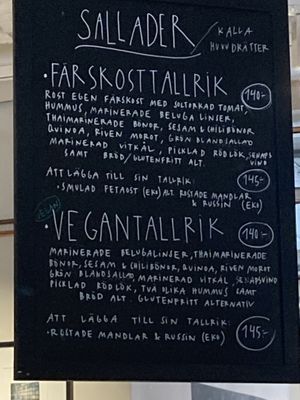 SALLADER / KALLA
HUVUDRÄTTER
• FÄRSKOSTTALLRIK 140:-
ROST EGEN FÄRSKOST MED SOLTORKAD TOMAT,
HUMMUS, MARINERADE BELUGA LINSER,
THAIMARINERADE BÖNOR, SESAM & CHILIBÖNOR
QUINOA, RIVEN MOROT, GRÖN BLANDSALLAD
MARINERAD VITKÅL, PICKLAD RÖDLÖK, SENAPS
VIND
SAMT BRÖD/GLUTENFRITT ALT.
ATT LÄGGA TILL SIN TALRIK: 145:-
• SMULAD FETAOST (EKO) ALT. ROSTADE MANDLAR
& RUSSIN (EKO)
VEGAN
• VEGANTALLRIK 140:-
MARINERADE BELUGALINSER, THAIMARINERADE
BÖNOR, SESAM & CHILIBÖNOR, QUINOA, RIVEN MOROT
GRÖN BLANDSALLAD, MARINERAD VITKÅL, SENAPSVIND
PICKLAD RÖDLÖK, TVÅ OLIKA HUMMUS SAMT
BRÖD ALT. GLUTENFRITT ALTERNATIV
ATT LÄGGA TILL SIN TALLRIK:
• ROSTADE MANDLAR & RUSSIN (EKO) 145:-